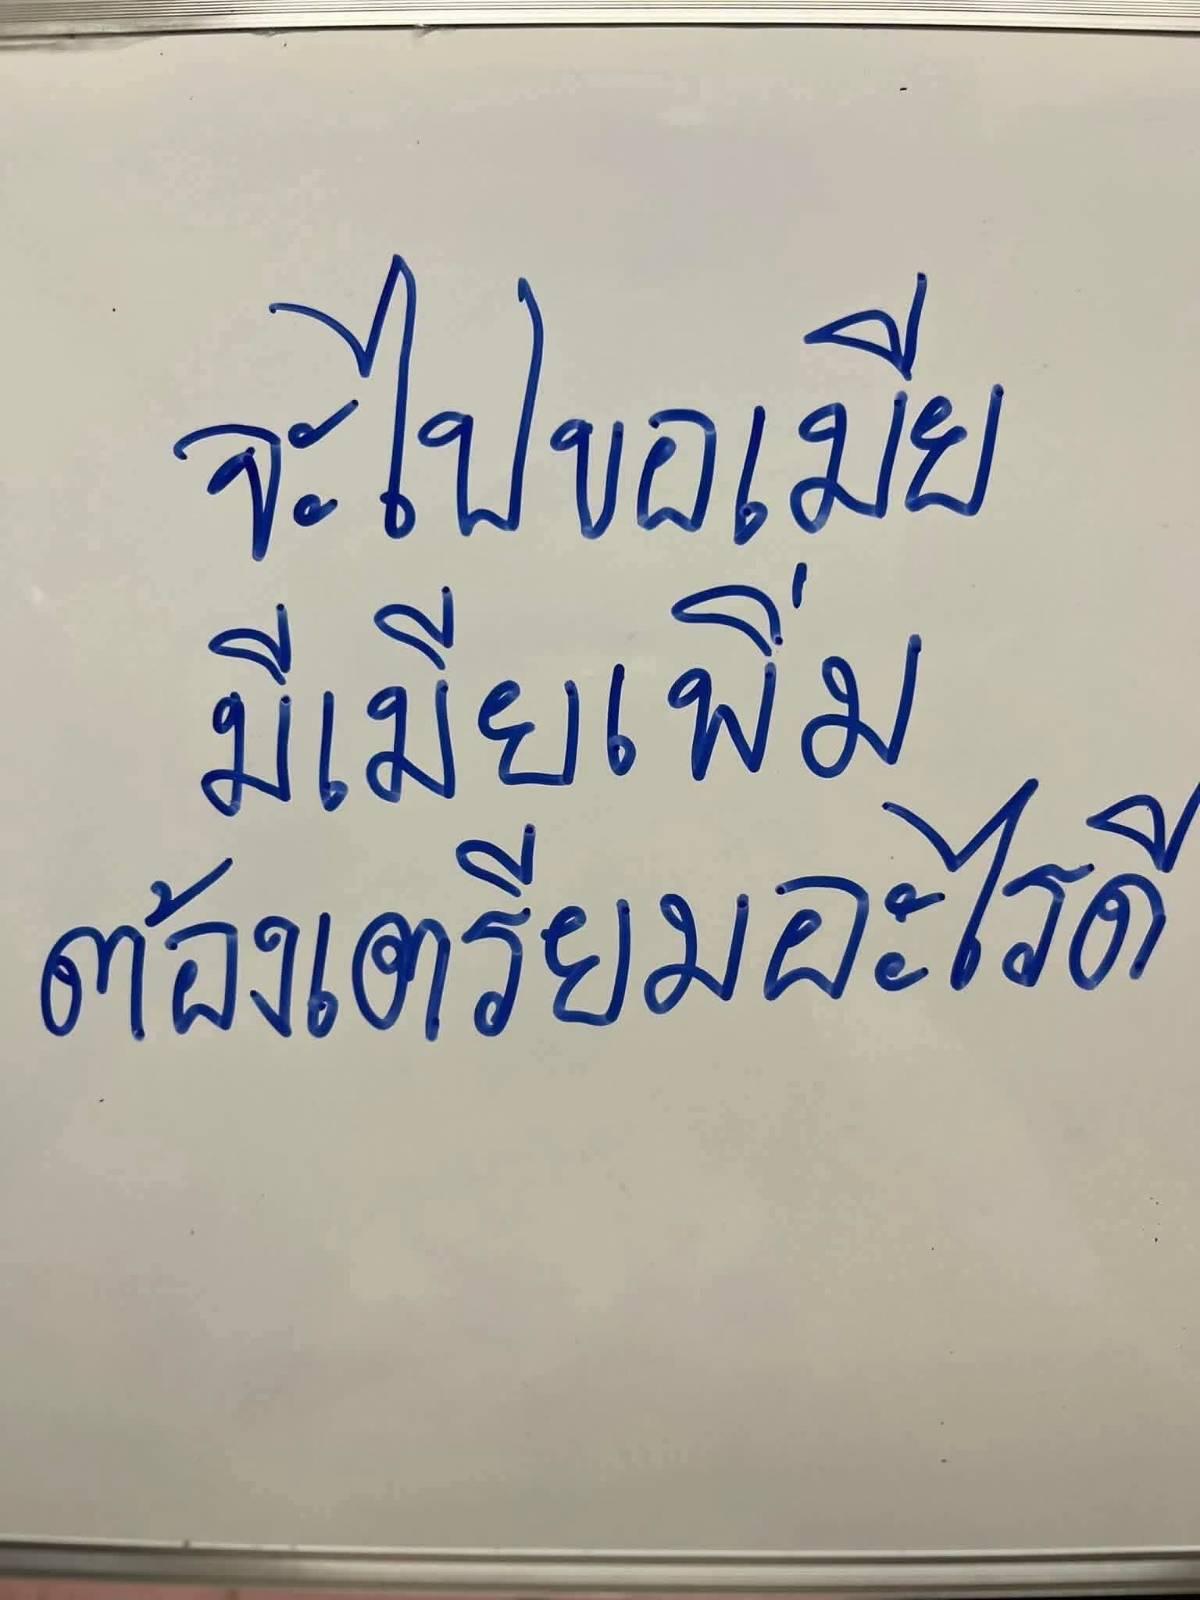 จะไปขอเมีย
มีเมียเพิ่ม
ต้องเตรียมอะไรดี